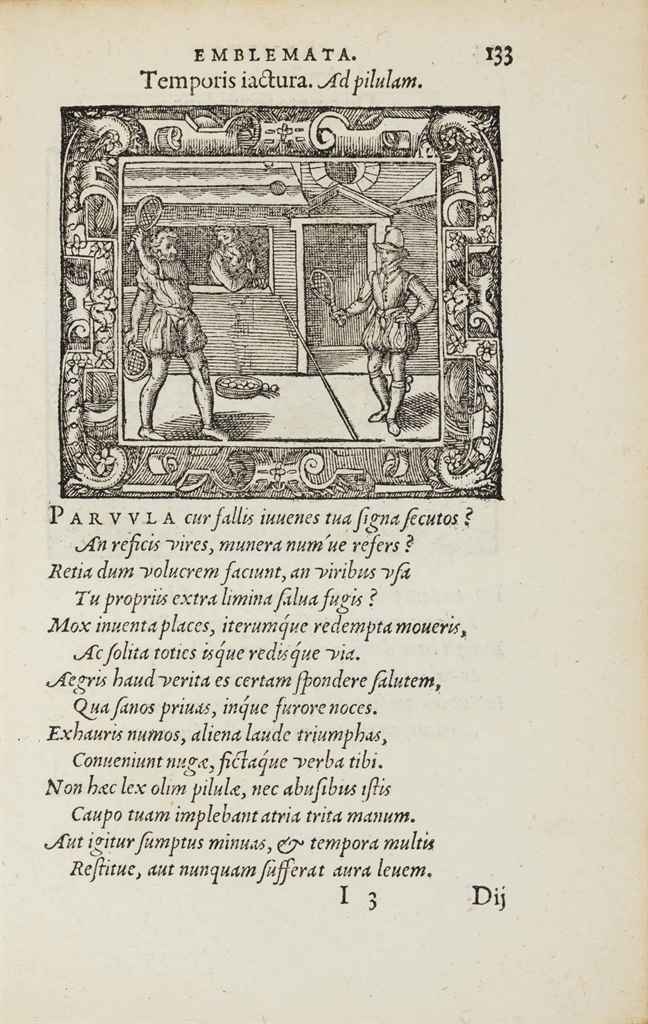 EMBLEMATA. 133
Temporis iactura. Ad pilulam.
PARVVLA cur fallis iuuenes tua signa secutos?
An reficis vires, munera num´ue refers?
Retia dum volucrem faciunt, an viribus vsa
Tu propriis extra limina salua fugis?
Mox inuenta places, iterumq́ue redempta moueris,
Ac solita toties isq́ue redisq́ue via.
Aegris haud verita es certam spondere salutem,
Qua sanos priuas, inq́ue furore noces.
Exhauris numos, aliena laude triumphas,
Conueniunt nugæ, fictaq́ue verba tibi.
Non hæc lex olim pilulæ, nec abusibus istis
Caupo tuam implebant atria trita manum.
Aut igitur sumptus minuas, & tempora multis
Restitue, aut nunquam sufferat aura leuem.
I 3 Dij